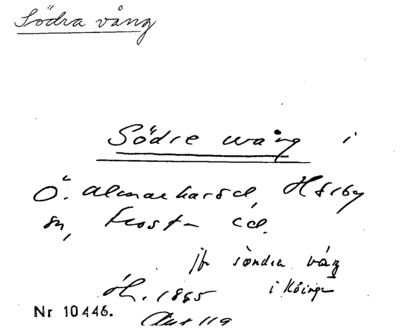 Södra vång
Södre wång i
Ö. Almarharöd, Hörby
sn, Frosta hd.
jfr söndra vång
i Köinge
öh. 1865
Akt 119
Nr 10446.